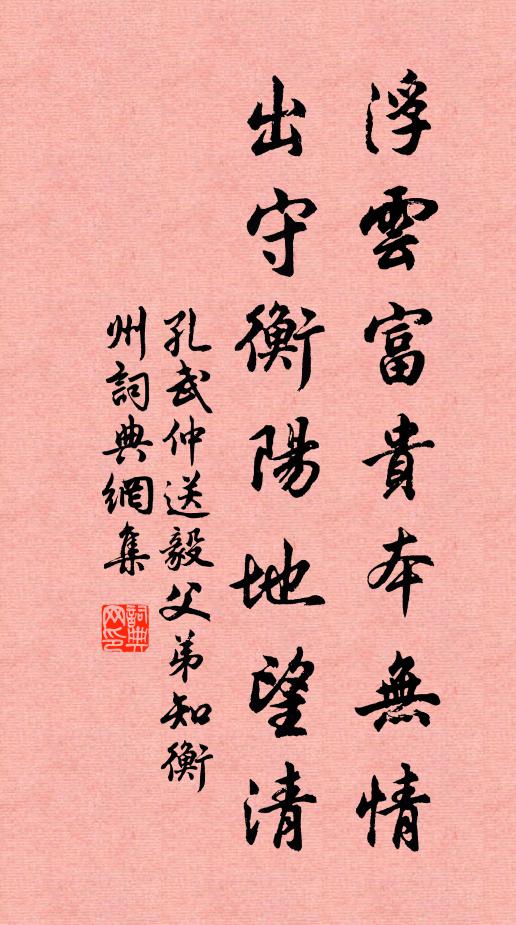 浮雲富貴本無情
出守衡陽地望清
孔武仲送毅父弟知衡
州詞典網集
詞典
网印